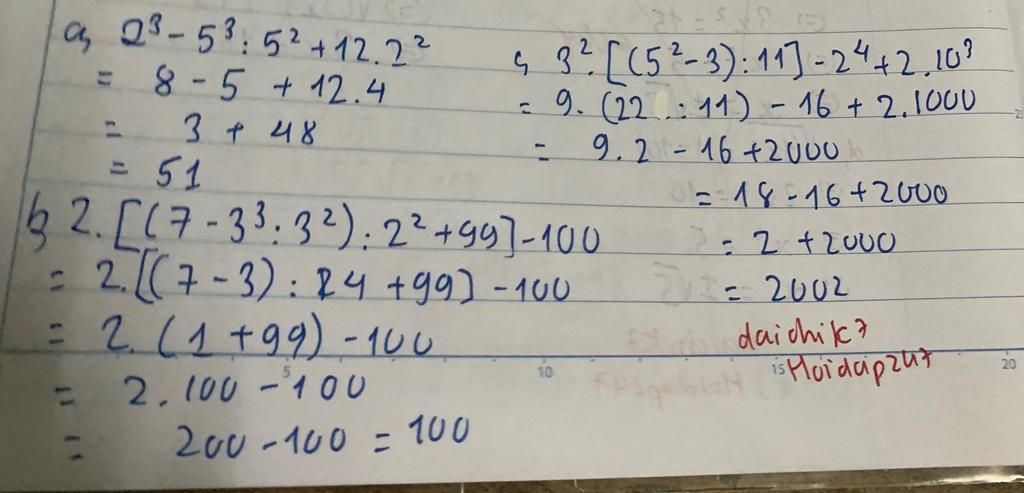 a, 2³ - 5³ : 5² + 12 . 2²
= 8 - 5 + 12 . 4
= 3 + 48
= 51
b, 2 . [(7 - 3³ : 3²) : 2² + 99] - 100
= 2 . [(7 - 3) : 4 + 99] - 100
= 2 . (1 + 99) - 100
= 2 . 100 - 100
= 200 - 100 = 100
c, 3² . [(5² - 3) : 11] - 2⁴ + 2 . 10³
= 9 . (22 : 11) - 16 + 2 . 1000
= 9 . 2 - 16 + 2000
= 18 - 16 + 2000
= 2 + 2000
= 2002
daichik7
Hoidap247
5 10 15 20